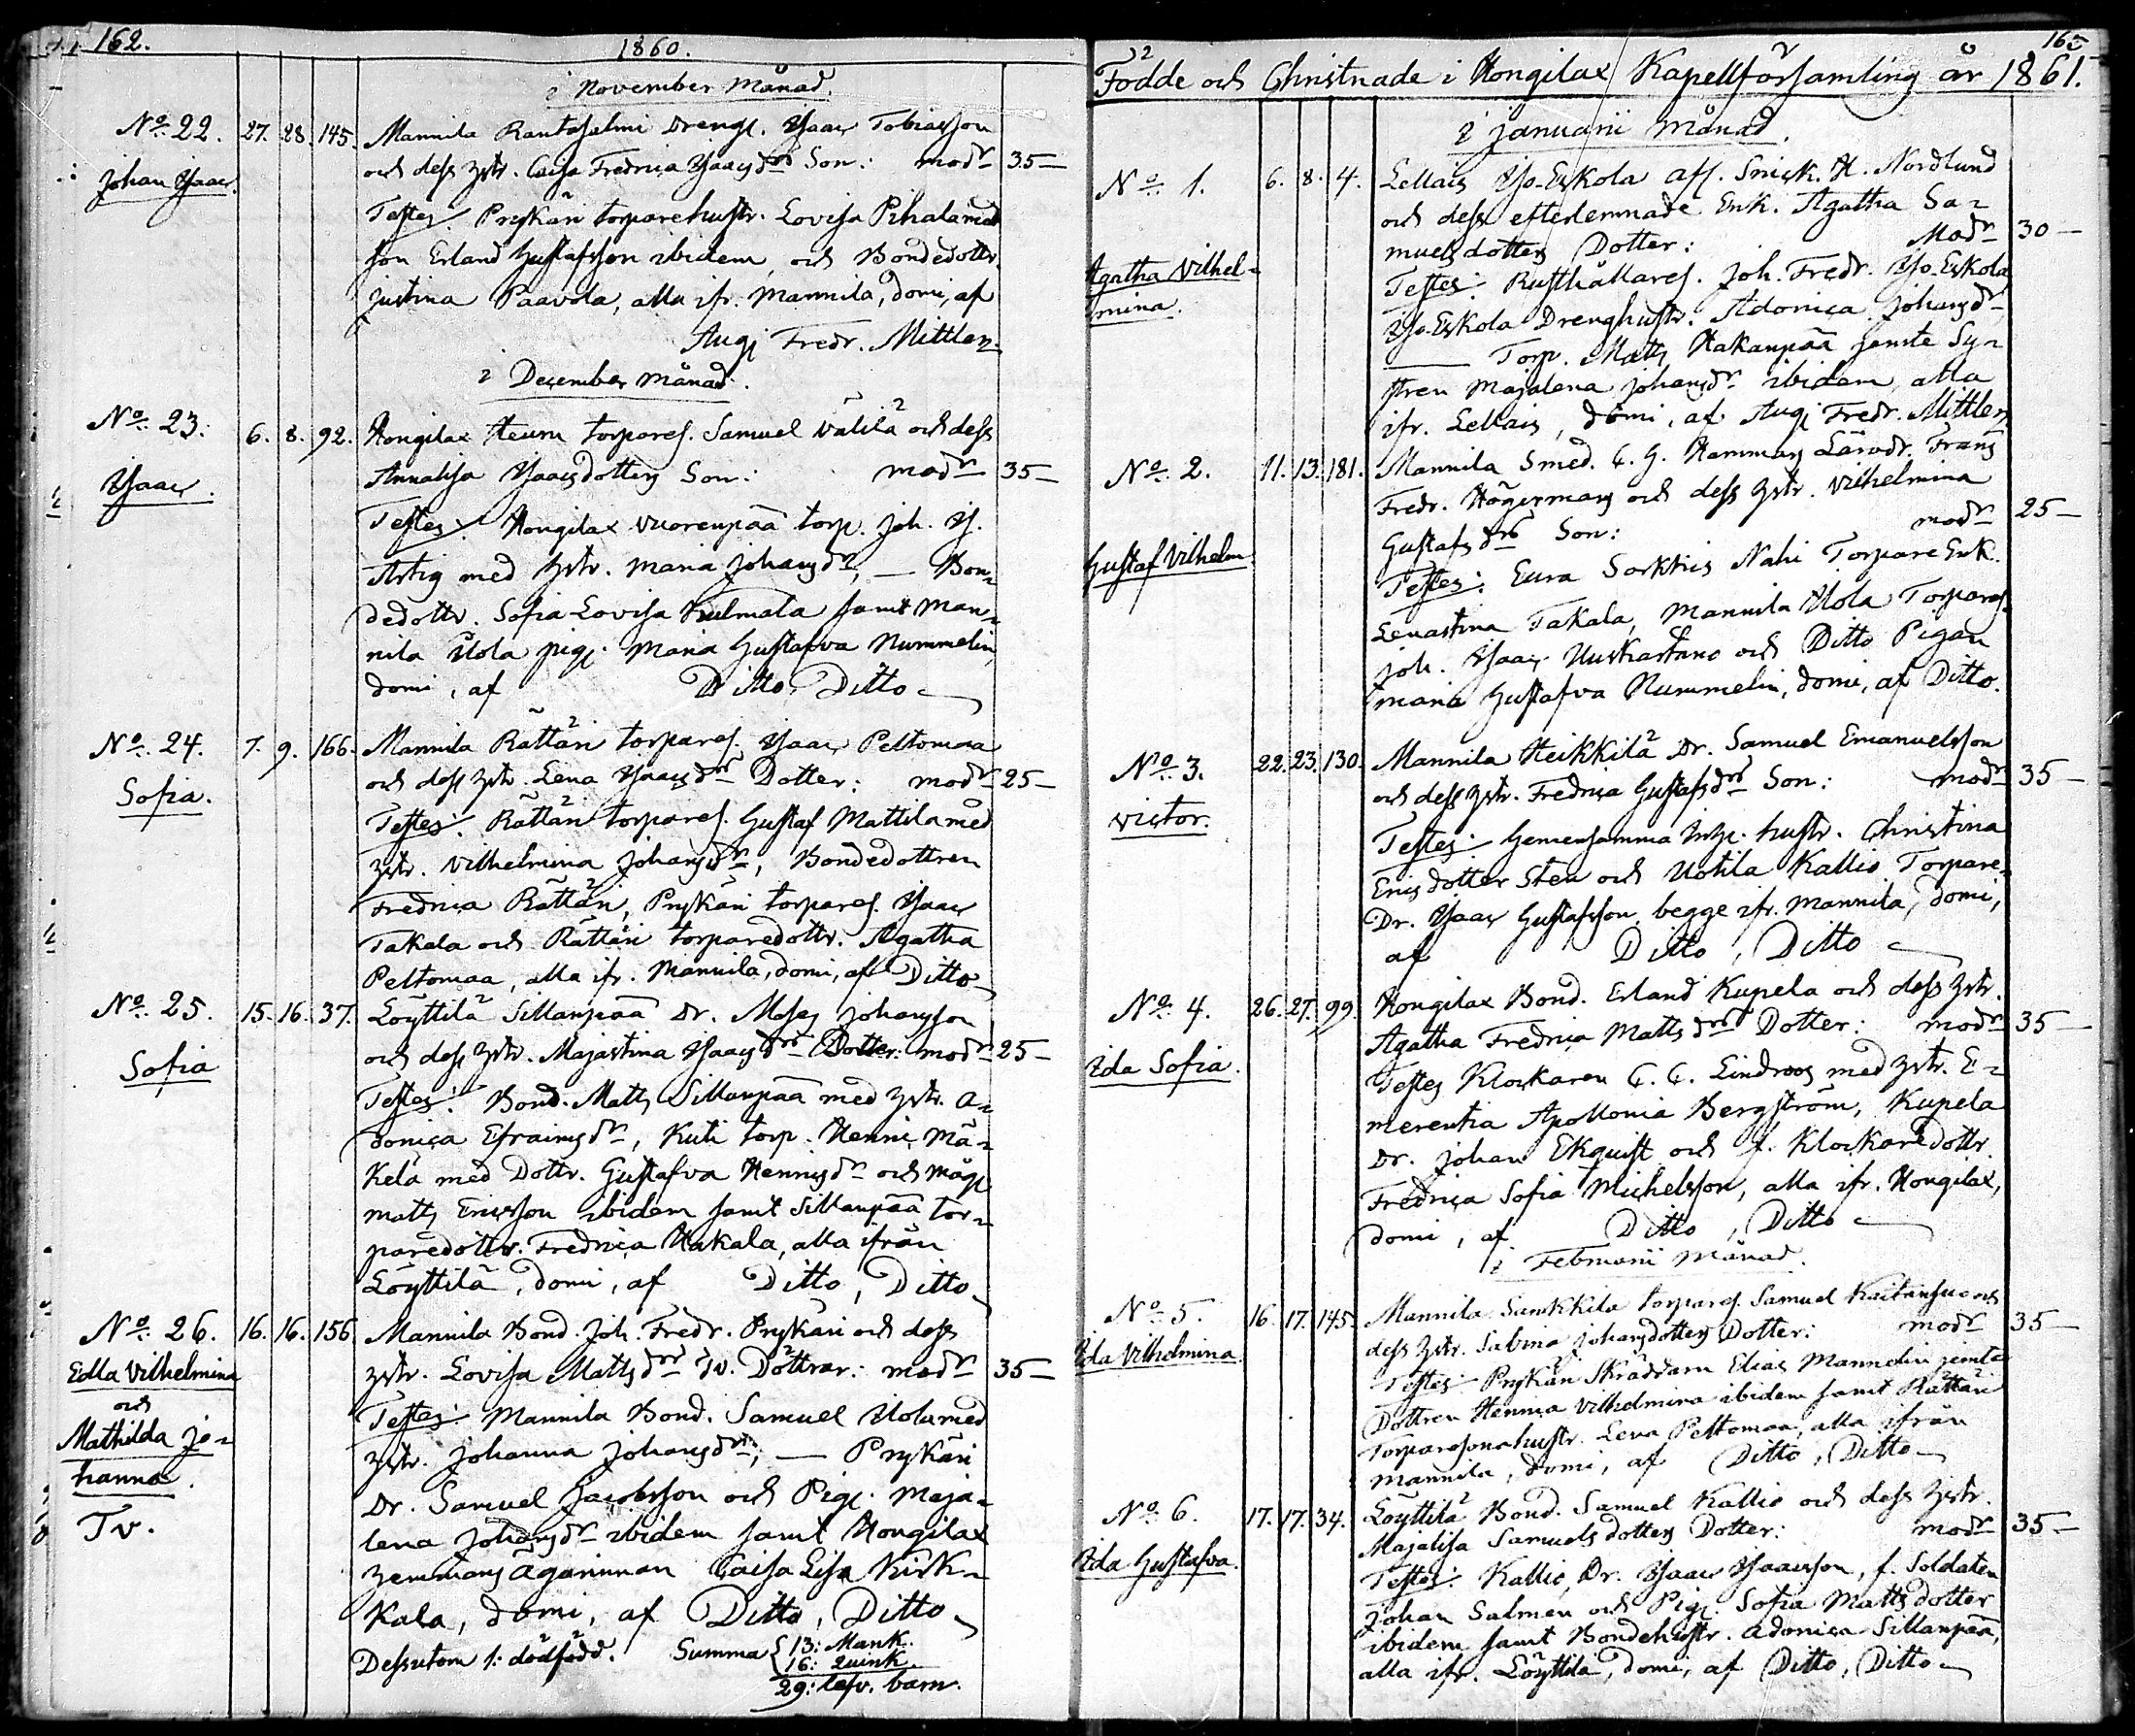 162.
1860.
i November Månad.
No. 22. 27. 28. 145. Mannila Rantasalmi Drengs. Isaac Tobiasson
Johan Isaac. och dess hstr. Caisa Fredrica Isaacsdrs Son: modr 35—
Testes: Prykäri torparehustr. Lovisa Pihala med
son Erland Gustafsson ibidem, och Bondedottr.
Justina Paavola, alla ifr. Mannila, domi, af
Augi Fredr. Mittler.
i December månad.
No. 23. 6. 8. 92. Hongilax Heuru torpares. Samuel Välilä och dess
Isaac. Annalisa Isaacsdotters Son: modr 35—
Testes: Hongilax Vuorenpää torp. Joh. Is.
Artig med hstr. Maria Johansdr, — Bon-
dedottr. Sofia Lovisa Kulmala samt Man-
nila Uola pig. Maria Gustafva Nummelin,
domi, af Ditto, Ditto
No. 24. 7. 9. 166. Mannila Rättäri torpares. Isaac Peltomaa
Sofia. och dess hstr. Lena Isaacsdrs Dotter: modr 25—
Testes: Rättäri torpares. Gustaf Mattila med
hstr. Vilhelmina Johansdr, Bondedottren
Fredrica Rättäri, Prykäri torpares. Isaac
Takala och Rättäri torparedottr. Agatha
Peltomaa, alla ifr. Mannila, domi, af Ditto
No. 25. 15. 16. 37. Löyttilä Sillanpää Dr. Moses Johansson
Sofia och dess hstr. Majastina Isaacsdrs Dotter: modr 25—
Testes: Bond. Matts Sillanpää med hstr. A-
donica Efraimsdr, Kuti torp. Henric Mä-
kelä med Dottr. Gustafva Henricsdr och måg
Matts Ericsson ibidem samt Sillanpää tor-
paredottr. Fredrica Hakala, alla ifrån
Löyttilä, domi, af Ditto, Ditto
No. 26. 16. 16. 156 Mannila Bond. Joh. Fredr. Prykäri och dess
Edla Vilhelmina hstr. Lovisa Mattsdrs Tv. Döttrar: modr 35—
och Testes: Mannila Bond. Samuel Uola med
Mathilda Jo- hstr. Johanna Johansdr, — Prykäri
hanna. Dr. Samuel Jacobsson och Pig. Maja-
Tv. lena Johansdr ibidem samt Hongilax
hemmans ägarinnan Caisa Lisa Kirk-
kala, domi, af Ditto, Ditto
Dessutom 1: dödfödd. Summa { 13: Mank.
16: Quink.
29: lefv. barn.
165
Födde och Christnade i Hongilax Kapellförsamling år 1861.
i Januarii Månad.
No. 1. 6. 8. 4. Lellais Iso-Eskola afl. Snick. H. Nordlund
och dess efterlemnade Enk. Agatha Sa-
muelsdotters Dotter: Modr 30—
Agatha Vilhel- Testes: Rusthållares. Joh. Fredr. Iso-Eskola,
mina. Iso-Eskola Drenghustr. Adonica Johansdr
— Torp. Matts Hakanpää jemte Sy-
stren Majalena Johansdr ibidem, alla
ifr. Lellais, domi, af Augi Fredr. Mittler
No. 2. 11. 13. 181. Mannila Smed. C. G. Hammars Lärodr. Frans
Fredr. Högermans och dess hstr. Vilhelmina
Gustafsdrs Son: modr 25—
Gustaf Vilhelm Testes: Eura Sorkkis Nahi Torpare Enk.
Lenastina Takala, Mannila Uola Torpares.
Joh. Isaac Uuskartano och Ditto Pigan
Maria Gustafva Nummelin, domi, af Ditto.
No. 3. 22. 23. 130. Mannila Heikkilä Dr. Samuel Emanuelsson
Victor. och dess hstr. Fredrica Gustafsdrs Son: modr 35—
Testes: Gemensamma Inh. hustr. Christina
Ericsdotter Sten och Uotila Kallio Torpare-
Dr. Isaac Gustafsson, begge ifr. Mannila, domi,
af Ditto, Ditto
No. 4. 26. 27. 99. Hongilax Bond. Erland Kupela och dess hstr.
Ida Sofia. Agatha Fredrica Mattsdrs Dotter: modr 35—
Testes Klockaren C. C. Lindroos med hstr. E-
merentia Apollonia Bergström, Kupela
Dr. Johan Ekquist och f. Klockaredottr.
Fredrica Sofia Michelsson, alla ifr. Hongilax,
domi, af Ditto, Ditto
i Februarii Månad.
No. 5. 16. 17. 145. Mannila Sankkila torpares. Samuel Kaitansuo och
Ida Vilhelmina dess hstr. Sabina Johansdotters Dotter: modr 35—
Testes: Prykäri Skräddarn Elias Mannelin jemte
Dottren Henrica Vilhelmina ibidem samt Rättäri
Torparesonahustr. Lena Peltomaa, alla ifrån
Mannila, domi, af Ditto, Ditto
No. 6. 17. 17. 34. Löyttilä Bond. Samuel Kallio och dess hstr.
Ida Gustafva. Majalisa Samuelsdotters Dotter: modr 35—
Testes: Kallio Dr. Isaac Isaacsson, f. Soldaten
Johan Salmen och Pig. Sofia Mattsdotter
ibidem samt Bondehustr. Adonica Sillanpää,
alla ifr. Löyttilä, domi, af Ditto, Ditto